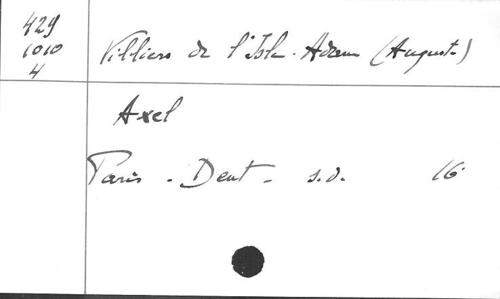 429
1010
4
Villiers de l'Isle-Adam (Auguste)
Axel
Paris - Dent - s.d. 16